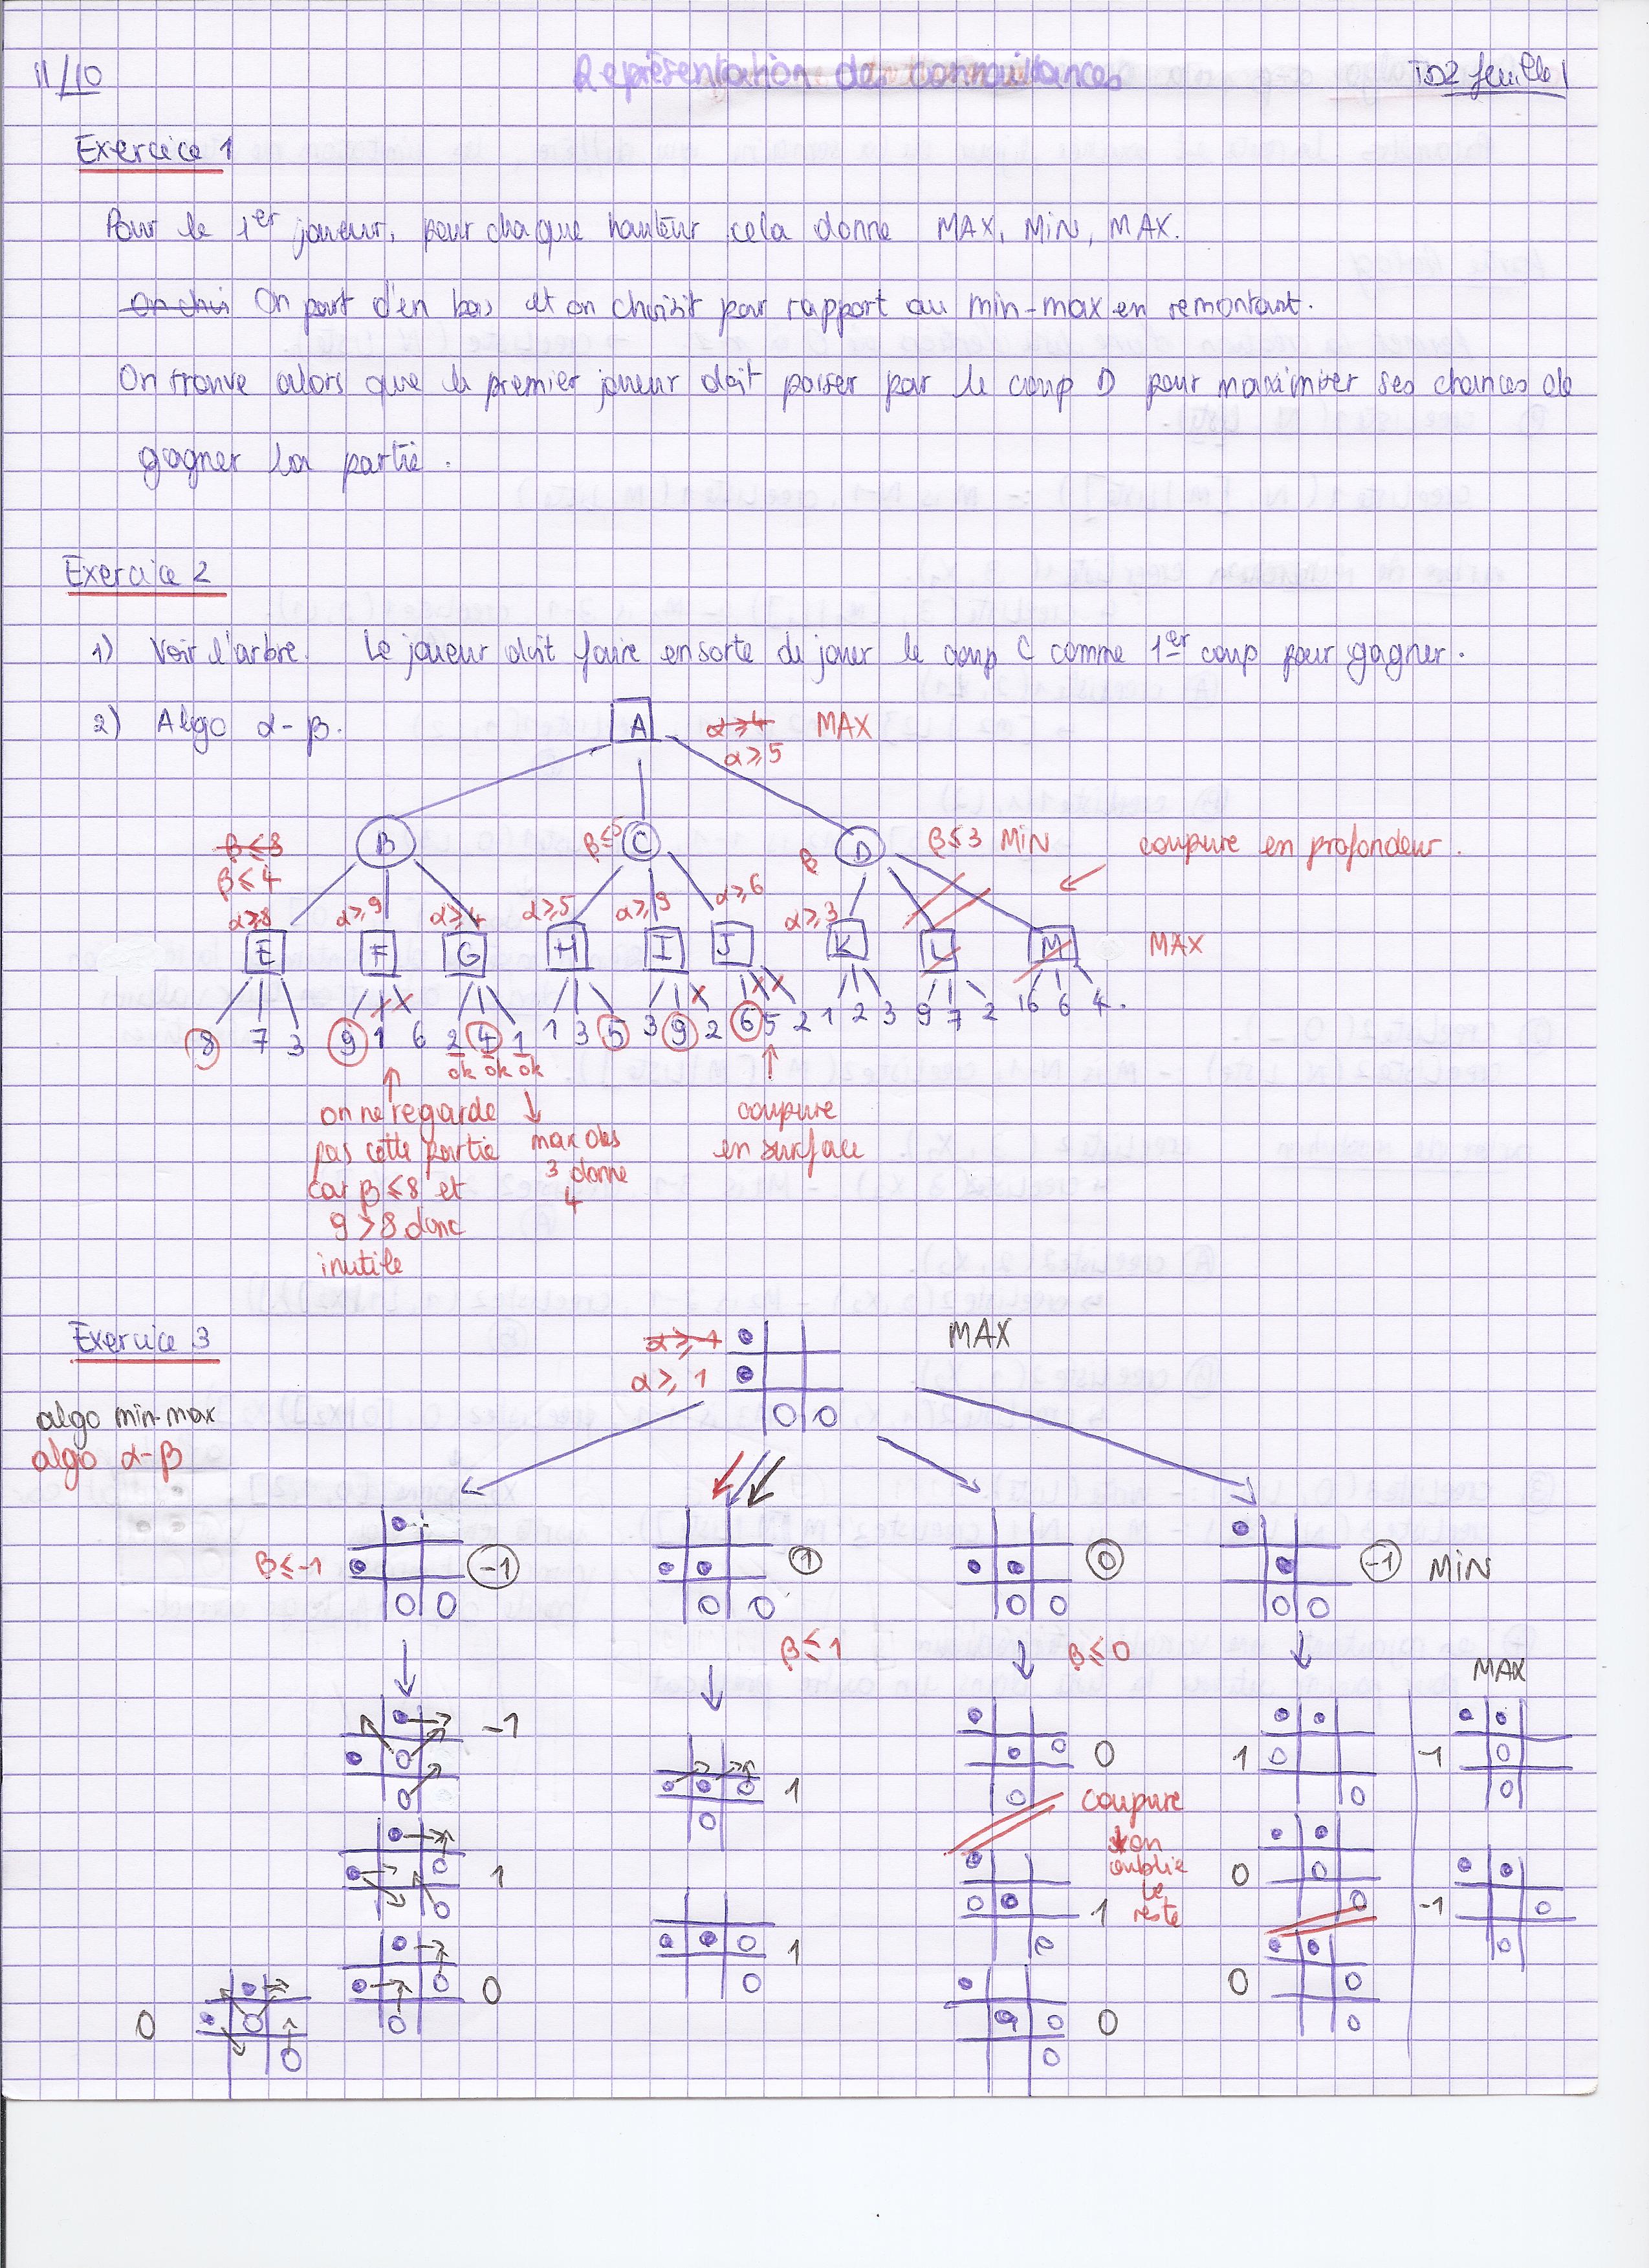 11/10
Représentation de connaissances
TD2 feuille 1
Exercice 1
Pour le 1er joueur, pour chaque hauteur cela donne MAX, MIN, MAX.
On choi On part d'en bas et on choisit par rapport au min-max en remontant.
On trouve alors que le premier joueur doit passer par le coup D pour maximiser ses chances de
gagner la partie.
Exercice 2
1) Voir l'arbre. Le joueur doit faire en sorte de jouer le coup C comme 1er coup pour gagner.
2) Algo α-β.
A α≥4 MAX
α≥5
β≤8 B β≤5 C β D β≤3 MIN coupure en profondeur.
β≤4
α≥8 α≥9 α≥4 α≥5 α≥9 α≥6 α≥3
E F G H I J K L M MAX
8 7 3 9 1 6 2 4 1 1 3 5 3 9 2 6 5 2 1 2 3 9 7 2 16 6 4.
ok ok ok
on ne regarde
pas cette partie
car β≤8 et
9>8 donc
inutile
max des
3 donne
4
coupure
en surface
Exercice 3
α≥-1 MAX
α≥1
algo min-max
algo α-β
β≤-1 -1 1 0 -1 MIN
β≤1 β≤0
MAX
-1 0 1 -1
1
coupure
on
oublie
le
reste
1 1 0 -1
0 1 0
0 0